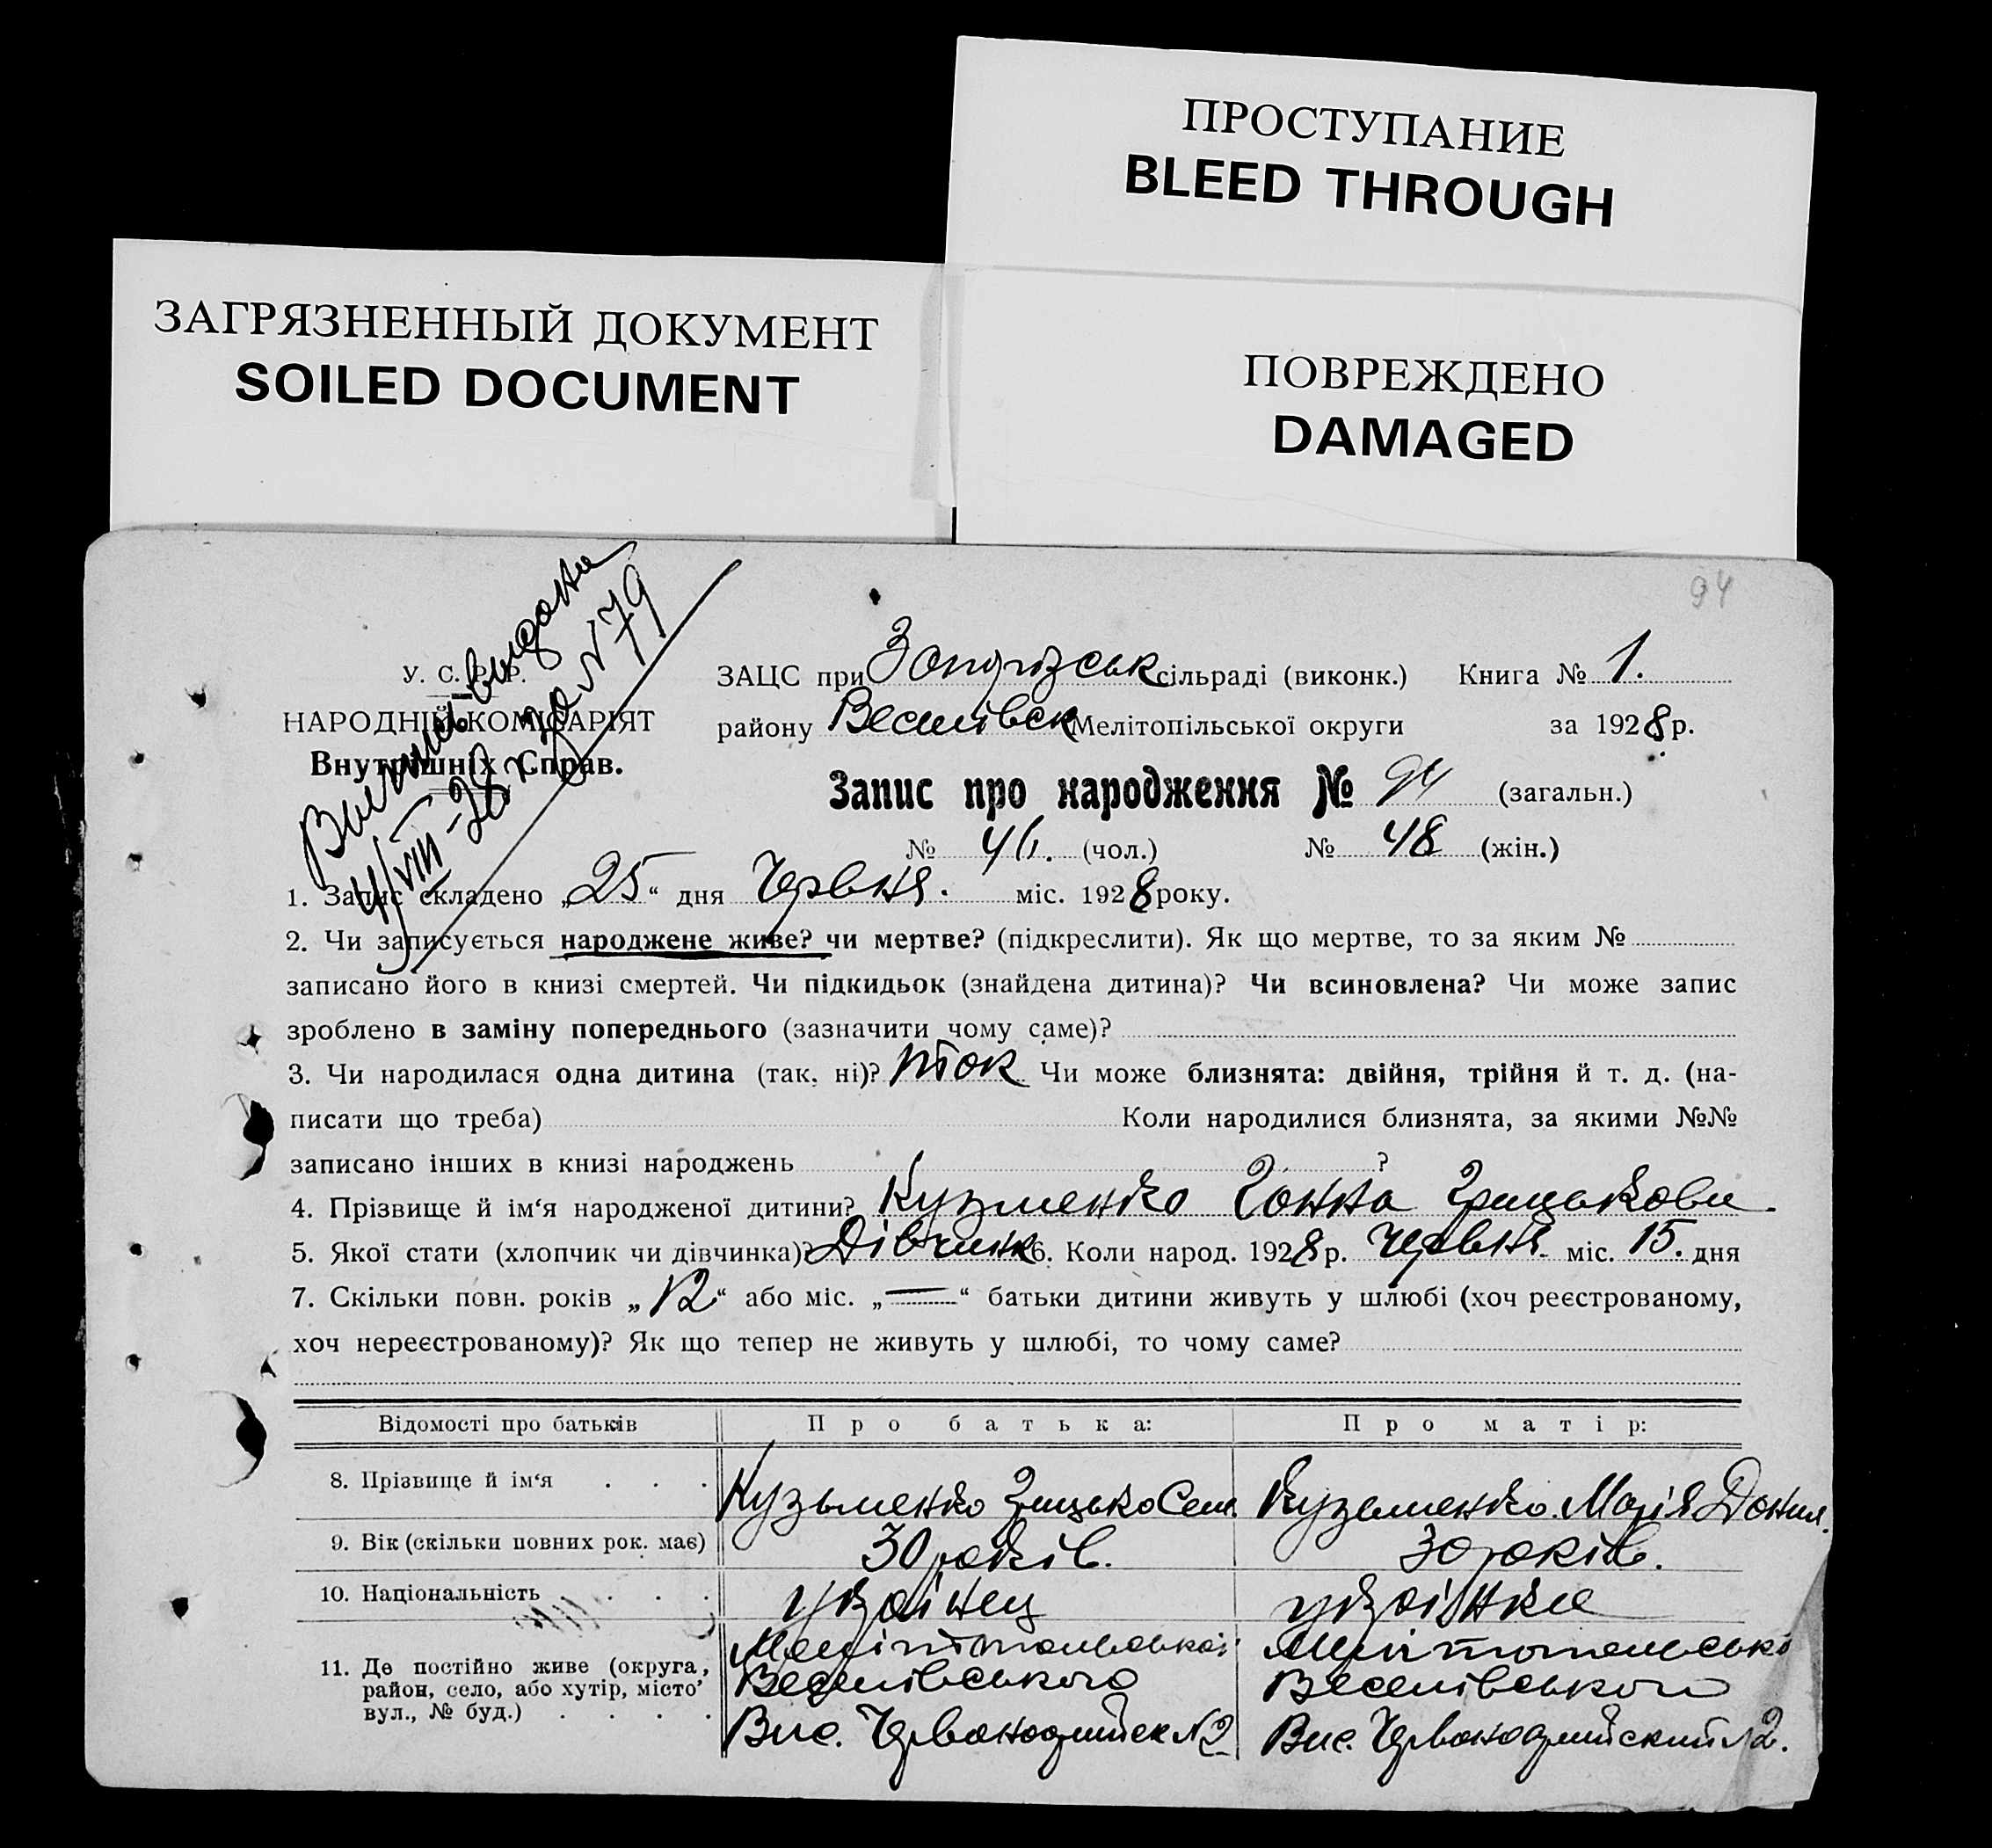 ПРОСТУПАНИЕ
BLEED THROUGH
ЗАГРЯЗНЕННЫЙ ДОКУМЕНТ
SOILED DOCUMENT
ПОВРЕЖДЕНО
DAMAGED
94
Выпись выдана
4/VIII-28 г. за N 79
У. С. Р. Р.
НАРОДНІЙ КОМІСАРІЯТ
Внутрішніх Справ.
ЗАЦС при сільраді (виконк.) Книга № 1.
району Веселівськ Мелітопільської округи за 1928 р.
Запис про народження № 94 (загальн.)
№ 46. (чол.) № 48 (жін.)
1. Запис складено „25“ дня Червня. міс. 1928 року.
2. Чи записується народжене живе? чи мертве? (підкреслити). Як що мертве, то за яким №
записано його в книзі смертей. Чи підкидьок (знайдена дитина)? Чи всиновлена? Чи може запис
зроблено в заміну попереднього (зазначити чому саме)?
3. Чи народилася одна дитина (так, ні)? так Чи може близнята: двійня, трійня й т. д. (на-
писати що треба) Коли народилися близнята, за якими №№
записано інших в книзі народжень ?
4. Прізвище й ім‘я народженої дитини? Кузменко Ганна Грицькова.
5. Якої стати (хлопчик чи дівчинка)? Дівчинк 6. Коли народ. 1928 р. Червня міс. 15. дня
7. Скільки повн. років „12“ або міс. „—“ батьки дитини живуть у шлюбі (хоч реєстрованому,
хоч нереєстрованому)? Як що тепер не живуть у шлюбі, то чому саме?
Відомості про батьків Про батька: Про матір:
8. Прізвище й ім‘я . . . Кузьменко Грицько Сем. Кузьменко Марія Данил.
9. Вік (скільки повних рок. має) 30 років. 30 років.
10. Національність . . . українец українка
11. Де постійно живе (округа, район, село, або хутір, місто, вул., № буд.) . . . .
Мелітопольської Мелітопольські
Веселівського Веселівського
Вис. Червоноармійск N2 Вис. Червоноармійский N2.